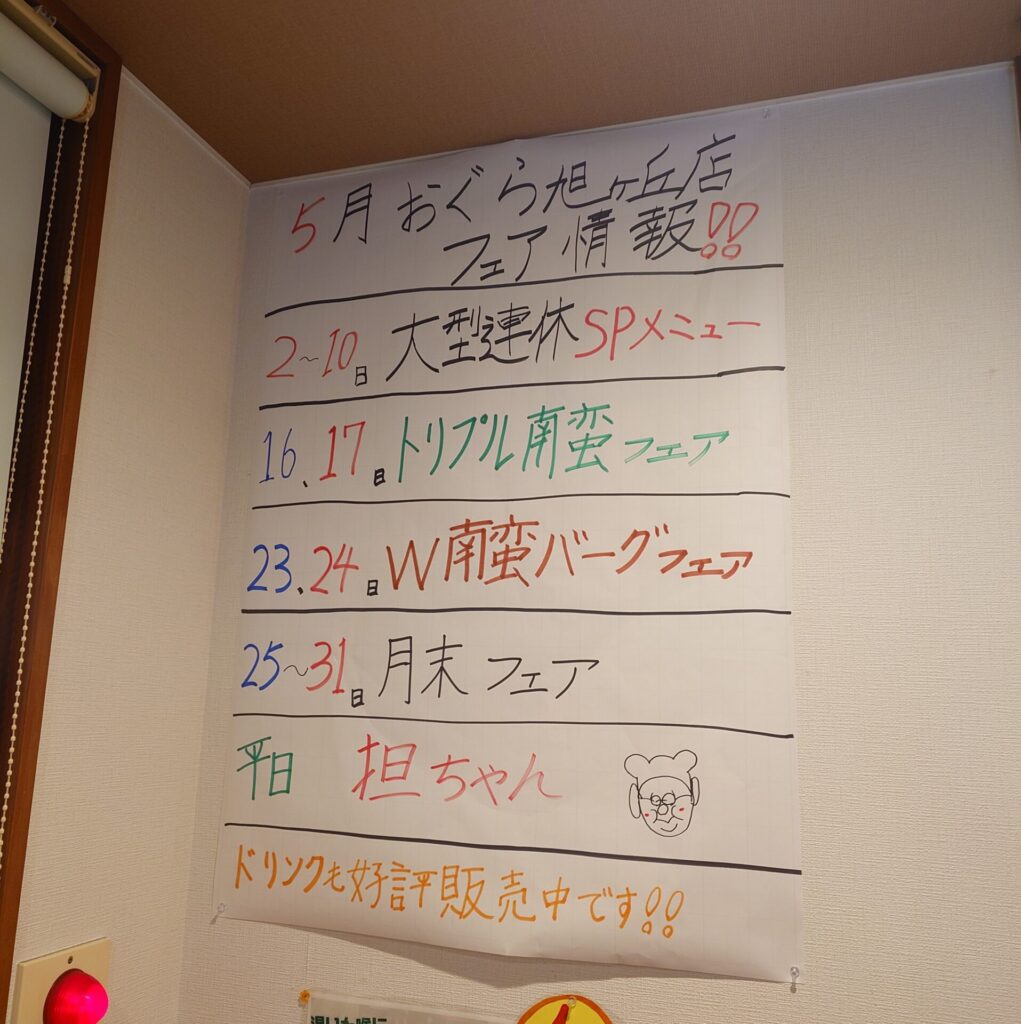 5月おぐら旭ヶ丘店
フェア情報!!
2~10日 大型連休SPメニュー
16、17日 トリプル南蛮フェア
23、24日 W南蛮バーグフェア
25~31日 月末フェア
平日 担ちゃん
ドリンクも好評販売中です!!